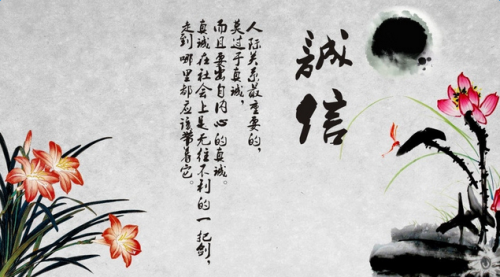 誠信
人际关系最重要的，
莫过于真诚，
而且要出自内心的真诚。
真诚在社会上是无往不利的一把剑，
走到哪里都应该带着它。